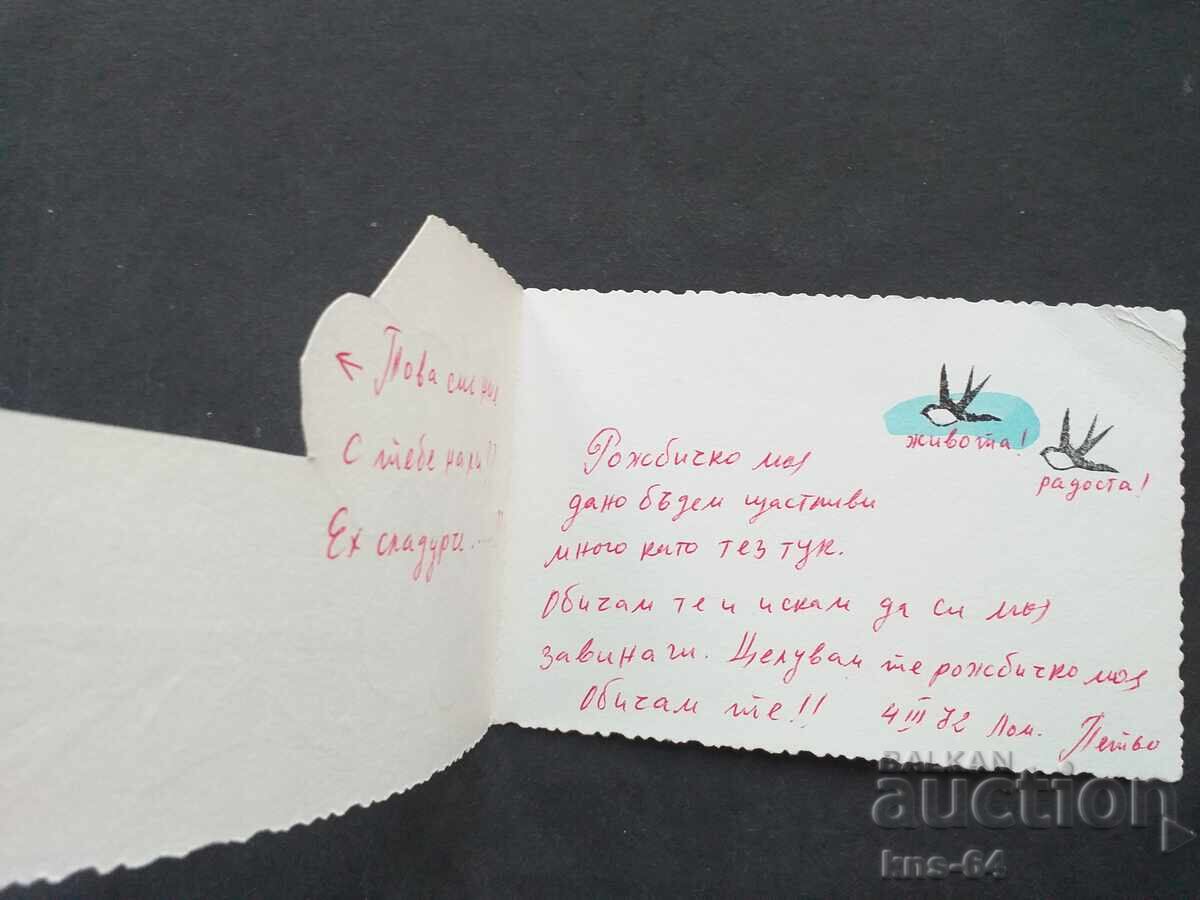 ← Това сме ние
С тебе нали
Ех сладури....
живота!
радоста!
Рожбичко моя
дано бъдем щастливи
много като тез тук.
Обичам те и искам да си моя
завинаги. Целувам те рожбичко моя
Обичам те!! 4 III 72 Лом. Петьо
BALKAN
auction
kns-64